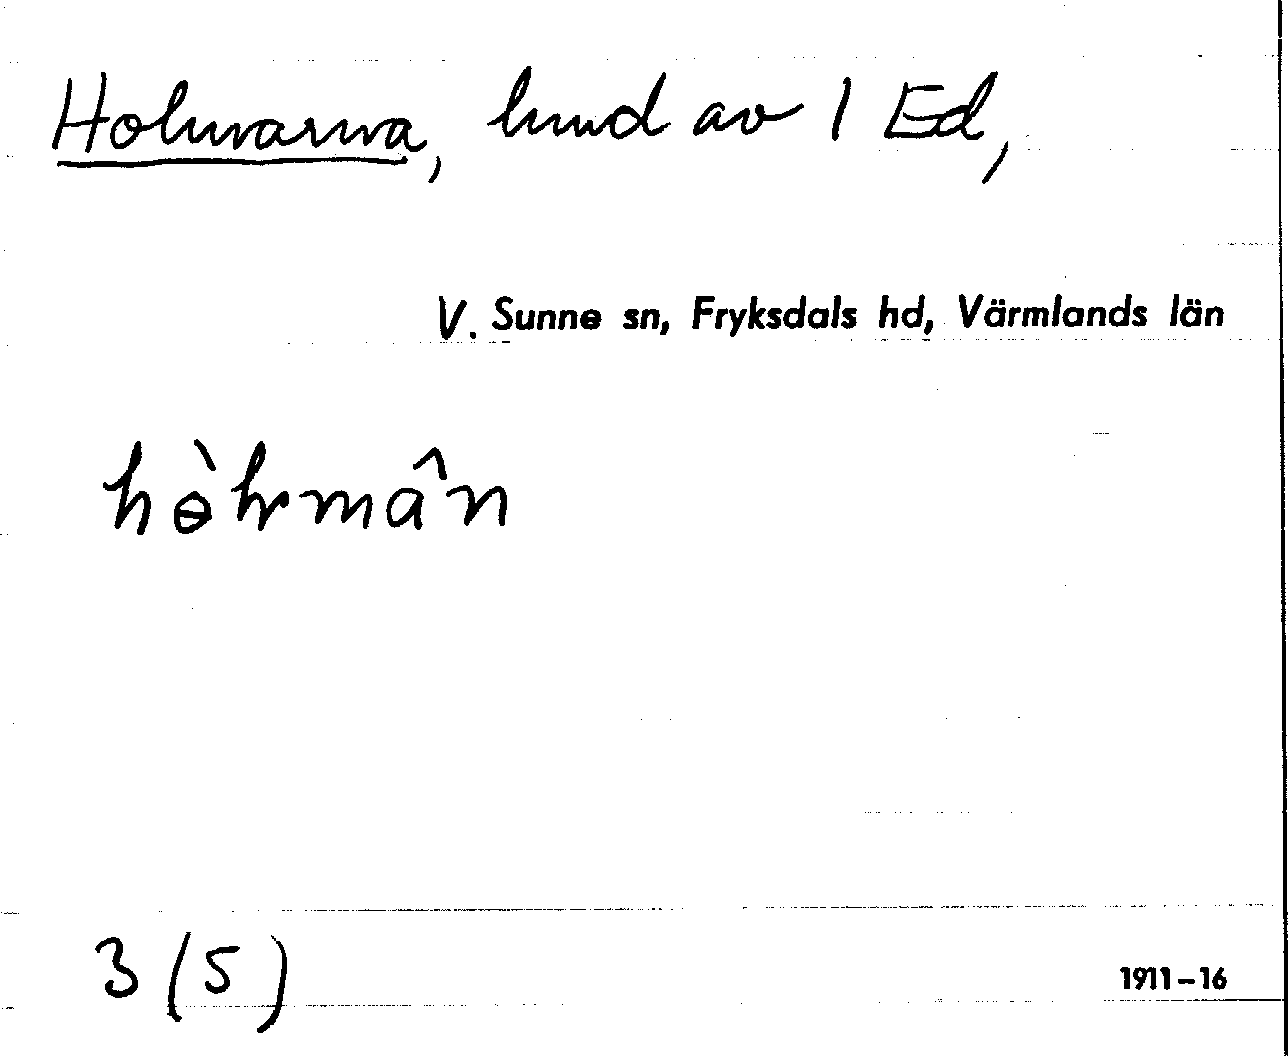 Holmarna, hmd av 1 Ed,
V. Sunne sn, Fryksdals hd, Värmlands län
3 (5)
1911–16